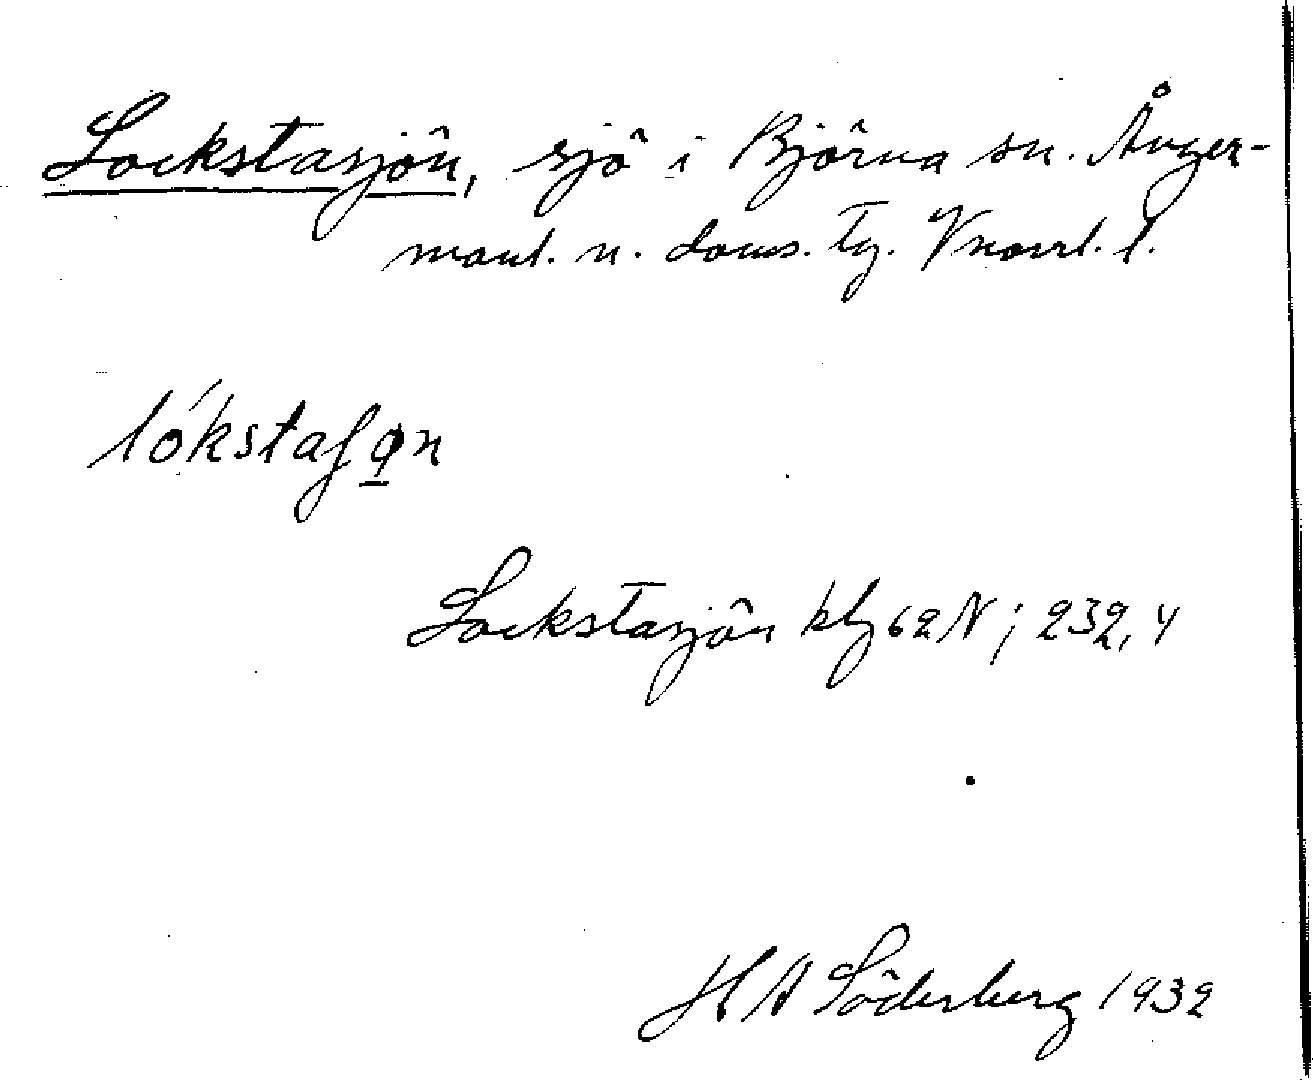 Lockstasjön, sjö i Björna sn. Ånger-
manl. n. doms. tg. Vnorrl. l.
lókstaʃǫn
Lockstasjön kbl 62 N; 232,4
H A Söderberg 1932